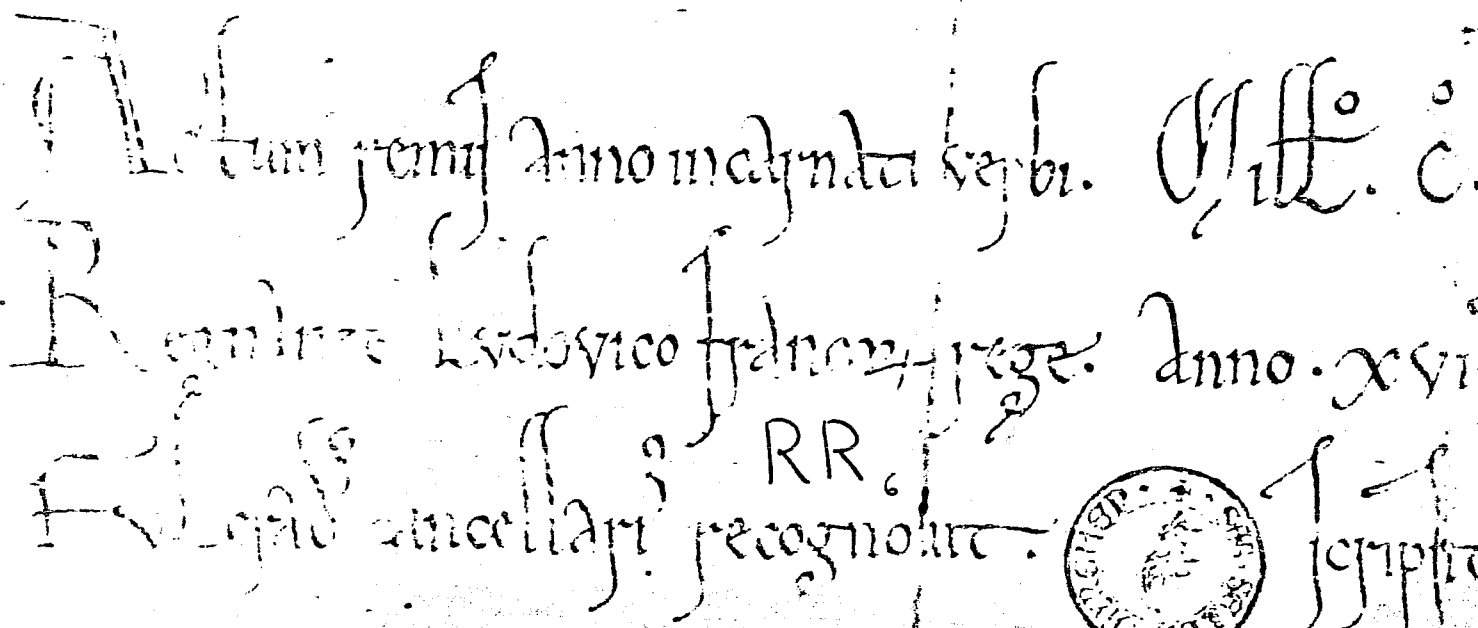 Actum remis anno incarnati verbi. Mill°. C°.
Regnante Ludovico francoꝝ rege. Anno. xvi
cancellariꝰ recognovit. scripsit
RR